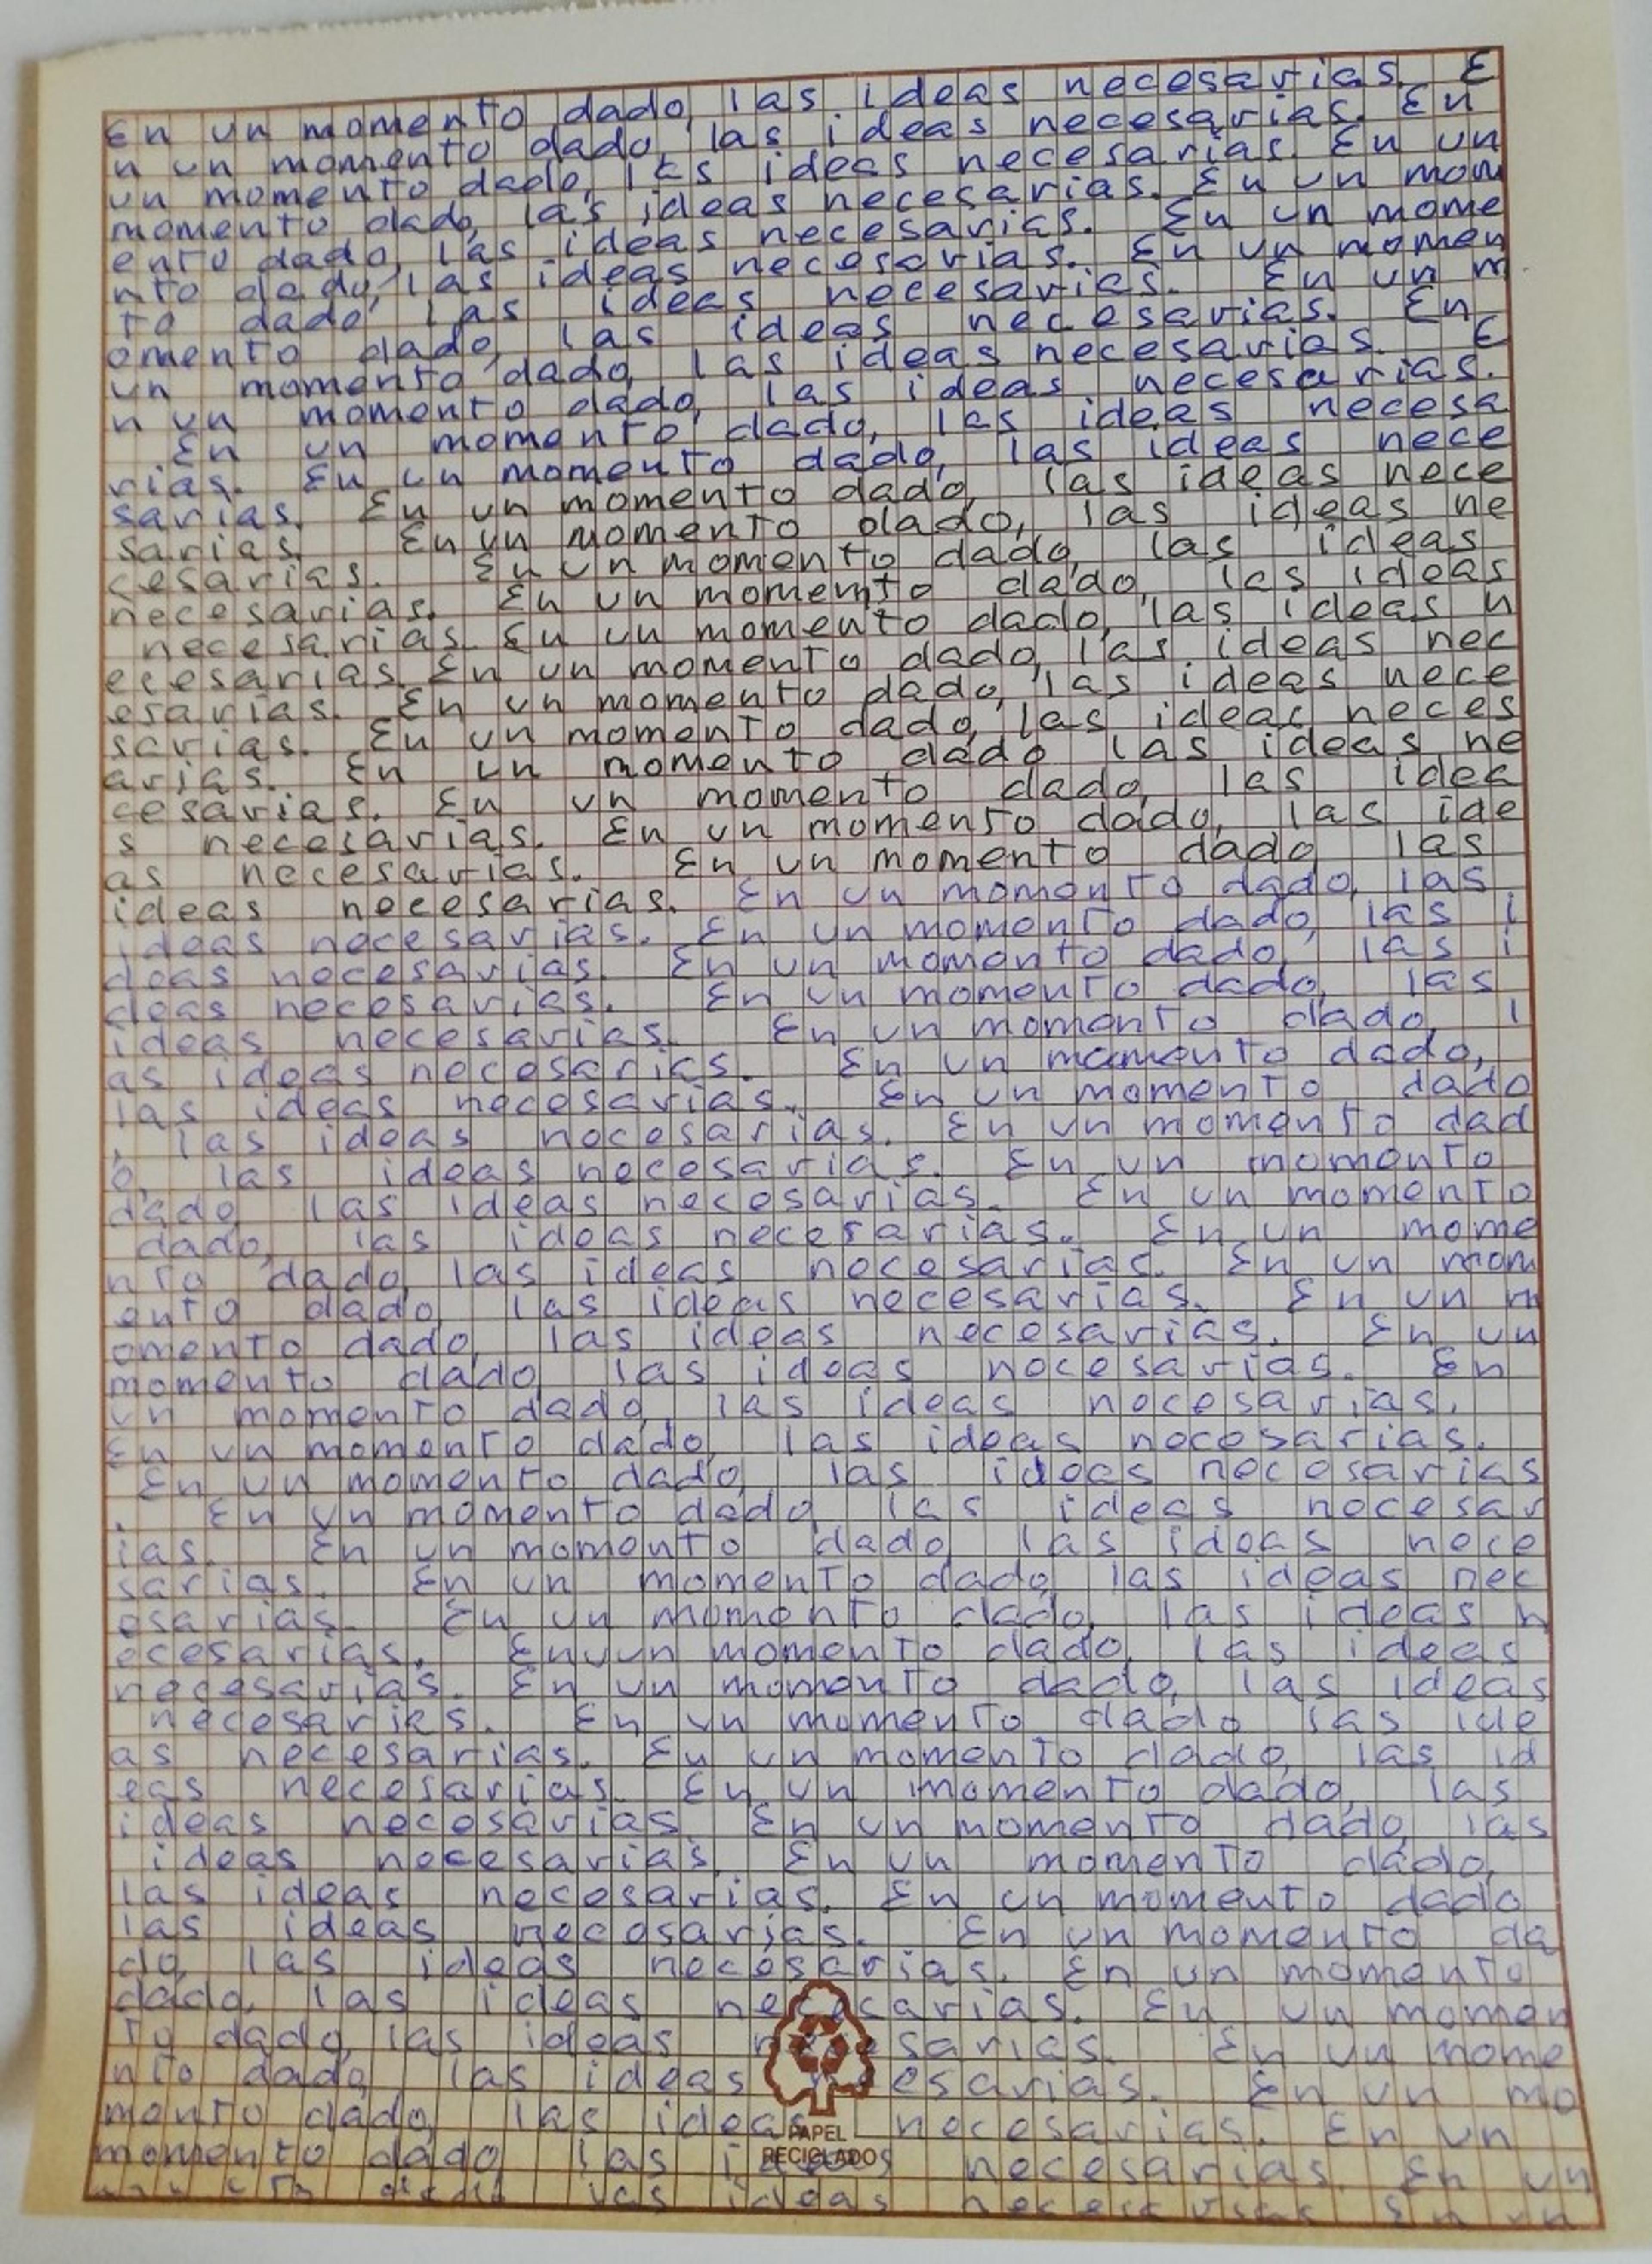 En un momento dado, las ideas necesarias. E
n un momento dado, las ideas necesarias. En
un momento dado, las ideas necesarias. En un
momento dado, las ideas necesarias. En un mom
ento dado, las ideas necesarias. En un mome
nto dado, las ideas necesarias. En un momen
to dado, las ideas necesarias. En un m
omento dado, las ideas necesarias. En
un momento dado, las ideas necesarias. E
n un momento dado, las ideas necesarias.
En un momento dado, las ideas necesa
rias. En un momento dado, las ideas nece
sarias. En un momento dado, las ideas nece
sarias. En un momento dado, las ideas ne
cesarias. En un momento dado, las ideas
necesarias. En un momento dado, las ideas
necesarias. En un momento dado, las ideas n
ecesarias. En un momento dado, las ideas nec
esarias. En un momento dado, las ideas nece
sarias. En un momento dado, las ideas neces
arias. En un momento dado las ideas ne
cesarias. En un momento dado, las idea
s necesarias. En un momento dado, las ide
as necesarias. En un momento dado las
ideas necesarias. En un momento dado, las
ideas necesarias. En un momento dado, las i
deas necesarias. En un momento dado, las i
deas necesarias. En un momento dado, las
ideas necesarias. En un momento dado, l
as ideas necesarias. En un momento dado,
las ideas necesarias. En un momento dado
, las ideas necesarias. En un momento dad
o, las ideas necesarias. En un momento
dado, las ideas necesarias. En un momento
dado, las ideas necesarias. En un mome
nto dado, las ideas necesarias. En un mom
ento dado, las ideas necesarias. En un m
omento dado, las ideas necesarias. En un
momento dado, las ideas necesarias. En
un momento dado, las ideas necesarias.
En un momento dado, las ideas necesarias.
En un momento dado, las ideas necesarias
. En un momento dado, las ideas necesar
ias. En un momento dado, las ideas nece
sarias. En un momento dado, las ideas nec
esarias. En un momento dado, las ideas n
ecesarias. En un momento dado, las ideas
necesarias. En un momento dado, las ideas
necesarias. En un momento dado, las ide
as necesarias. En un momento dado, las id
eas necesarias. En un momento dado, las
ideas necesarias. En un momento dado, las
ideas necesarias. En un momento dado,
las ideas necesarias. En un momento dado
las ideas necesarias. En un momento da
do, las ideas necesarias. En un momento
dado, las ideas necesarias. En un momen
to dado, las ideas necesarias. En un mome
nto dado, las ideas necesarias. En un mo
mento dado, las ideas necesarias. En un
momento dado las ideas necesarias. En un
las ideas
PAPEL
RECICLADOS